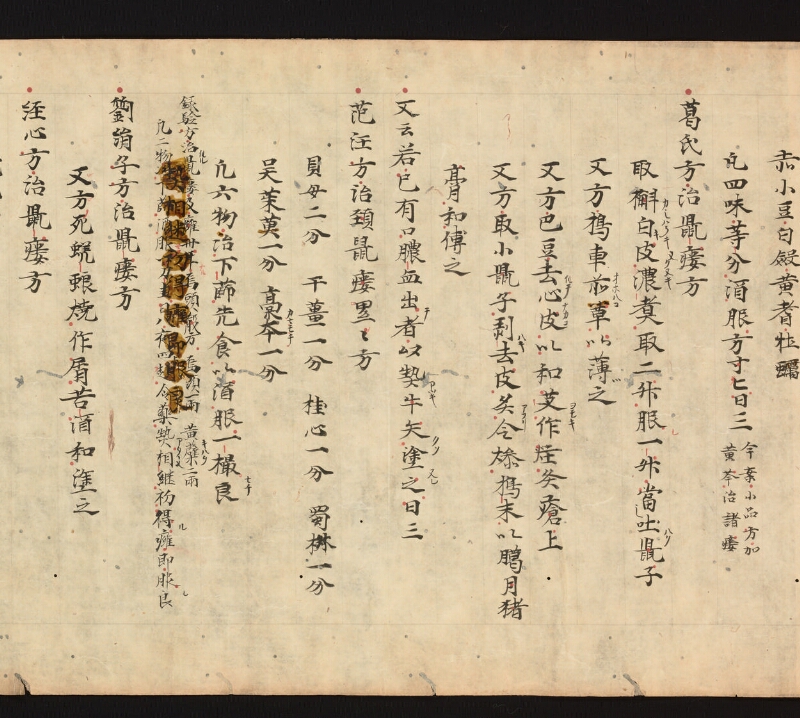 赤小豆 白蘞 黄耆 牡蠣
凡四味等分酒服方寸匕日三 今案小品方加黄芩治諸瘻
葛氏方治鼠瘻方
取槲白皮濃煮取二升服一升當吐鼠子
又方 車前草以薄之
又方巴豆去心皮以和艾作炷灸瘡上
又方取小鼠子剥去皮炙令 末以臘月猪
膏和傅之
又云若已有口膿血出者以熱牛矢塗之日三
范汪方治頚鼠瘻累々方
貝母二分 干薑一分 桂心一分 蜀椒一分
吴茱萸一分 藁本一分
凡六物治下篩先食以酒服一撮良
録驗方治鼠瘻及 烏頭 方 烏頭一兩 黄蘗二兩
凡二物 酒服 日 令藥勢相継初得癰即服良
劉涓子方治鼠瘻方
又方死蛇 燒作屑苦酒和塗之
経心方治鼠瘻方